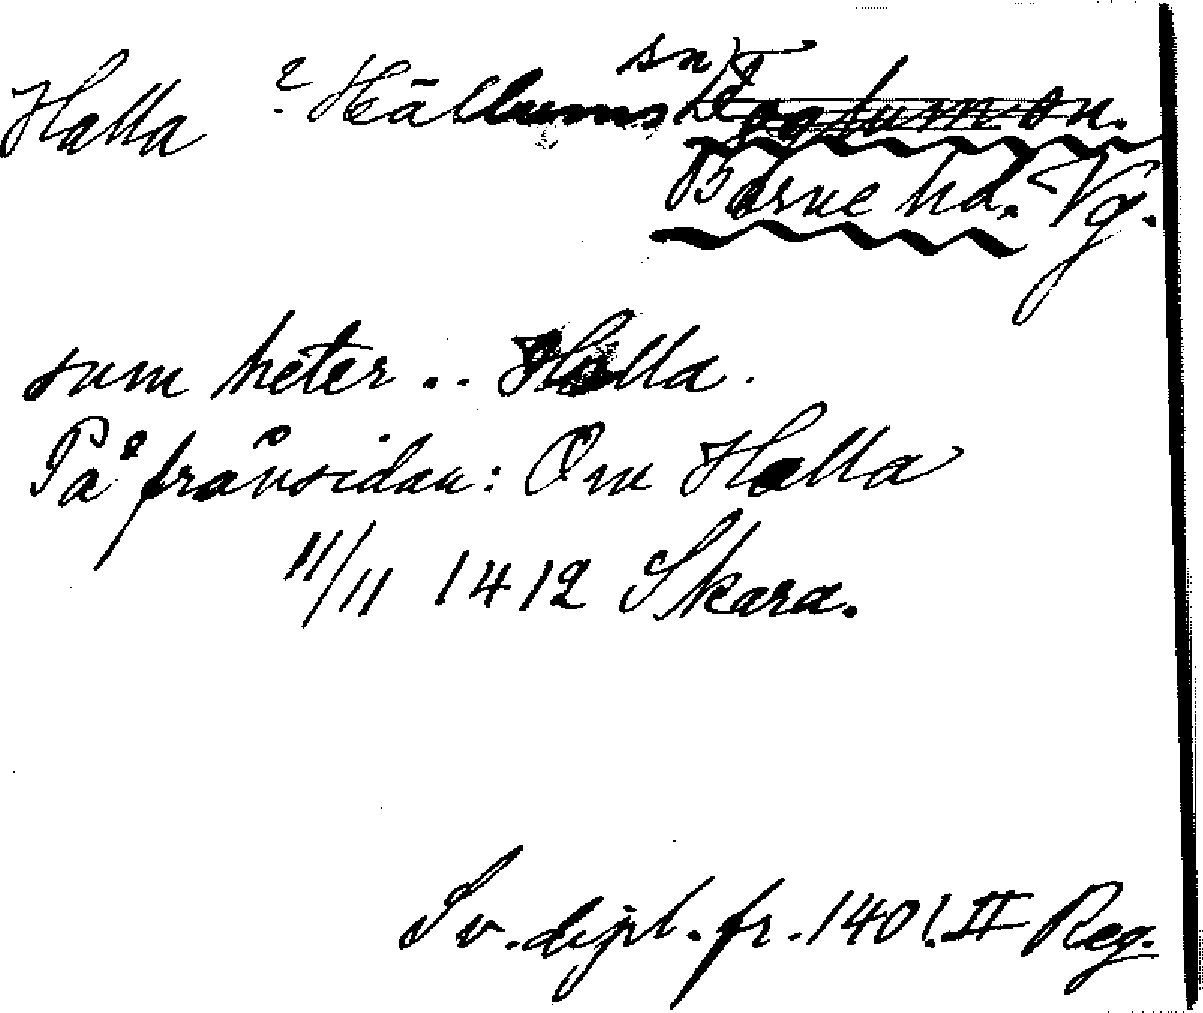 Halla ? Hällums sn Foglum sn.
Barne hd. Vg.
sum heter .. Halla.
På frånsidan: Om Halla
11/11 1412 Skara.
Sv. dipl. fr. 1401. II Reg.